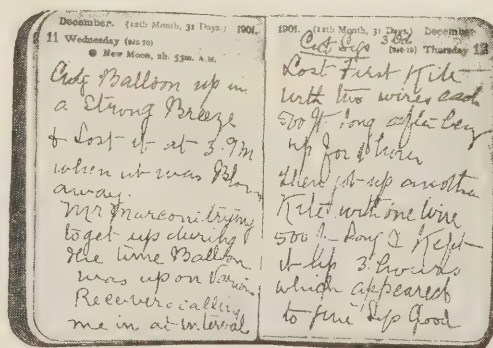 December. (12th Month, 31 Days.) 1901.
11 Wednesday (345-20)
New Moon, 2h. 53m. A.M.
Balloon up in
a Strong Breeze
& Lost it at 3.PM
when it was Blown
away.
Mr Marconi trying
to get up during
the time Balloon
was up on Various
Receivers calling
me in at intervals
1901. (12th Month, 31 Days.) December.
Thursday 12
Lost First Kite
with two wires each
500 ft long after being
up for 1 hour
then got up another
Kite with one wire
500 ft Long & Kept
it Up 3 hours
which appeared
to give Sigs Good